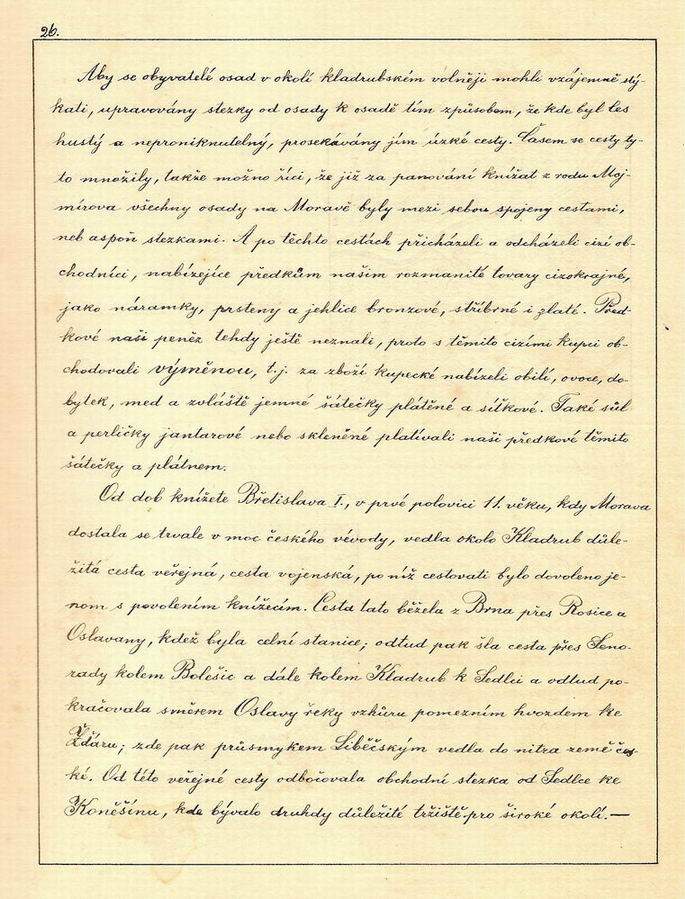 26.
Aby se obyvatelé osad v okolí kladrubském volněji mohli vzájemně stý-
kati, upravovány stezky od osady k osadě tím způsobem, že kde byl les
hustý a neproniknutelný, prosekávány jím úzké cesty. Časem se cesty ty-
to množily, takže možno říci, že již za panování knížat z rodu Moj-
mírova všechny osady na Moravě byly mezi sebou spojeny cestami,
neb aspoň stezkami. A po těchto cestách přicházeli a odcházeli cizí ob-
chodníci, nabízejíce předkům našim rozmanité tovary cizokrajné,
jako náramky, prsteny a jehlice bronzové, stříbrné i zlaté. Před-
kové naši peněz tehdy ještě neznali, proto s těmito cizími kupci ob-
chodovali výměnou, t.j. za zboží kupecké nabízeli obilí, ovoce, do-
bytek, med a zvláště jemné šátečky plátěné a síťkové. Také sůl
a perličky jantarové nebo skleněné platívali naši předkové těmito
šátečky a plátnem.
Od dob knížete Břetislava I., v prvé polovici 11. věku, kdy Morava
dostala se trvale v moc českého vévody, vedla okolo Kladrub důle-
žitá cesta veřejná, cesta vojenská, po níž cestovati bylo dovoleno je-
nom s povolením knížecím. Cesta tato běžela z Brna přes Rosice a
Oslavany, kdež byla celní stanice; odtud pak šla cesta přes Seno-
rady kolem Bolešic a dále kolem Kladrub k Sedlci a odtud po-
kračovala směrem Oslavy řeky vzhůru pomezním hvozdem ke
Žďáru; zde pak průsmykem Liběčským vedla do nitra země čes-
ké. Od této veřejné cesty odbočovala obchodní stezka od Sedlce ke
Koněšínu, kde bývalo druhdy důležité tržiště pro široké okolí.—